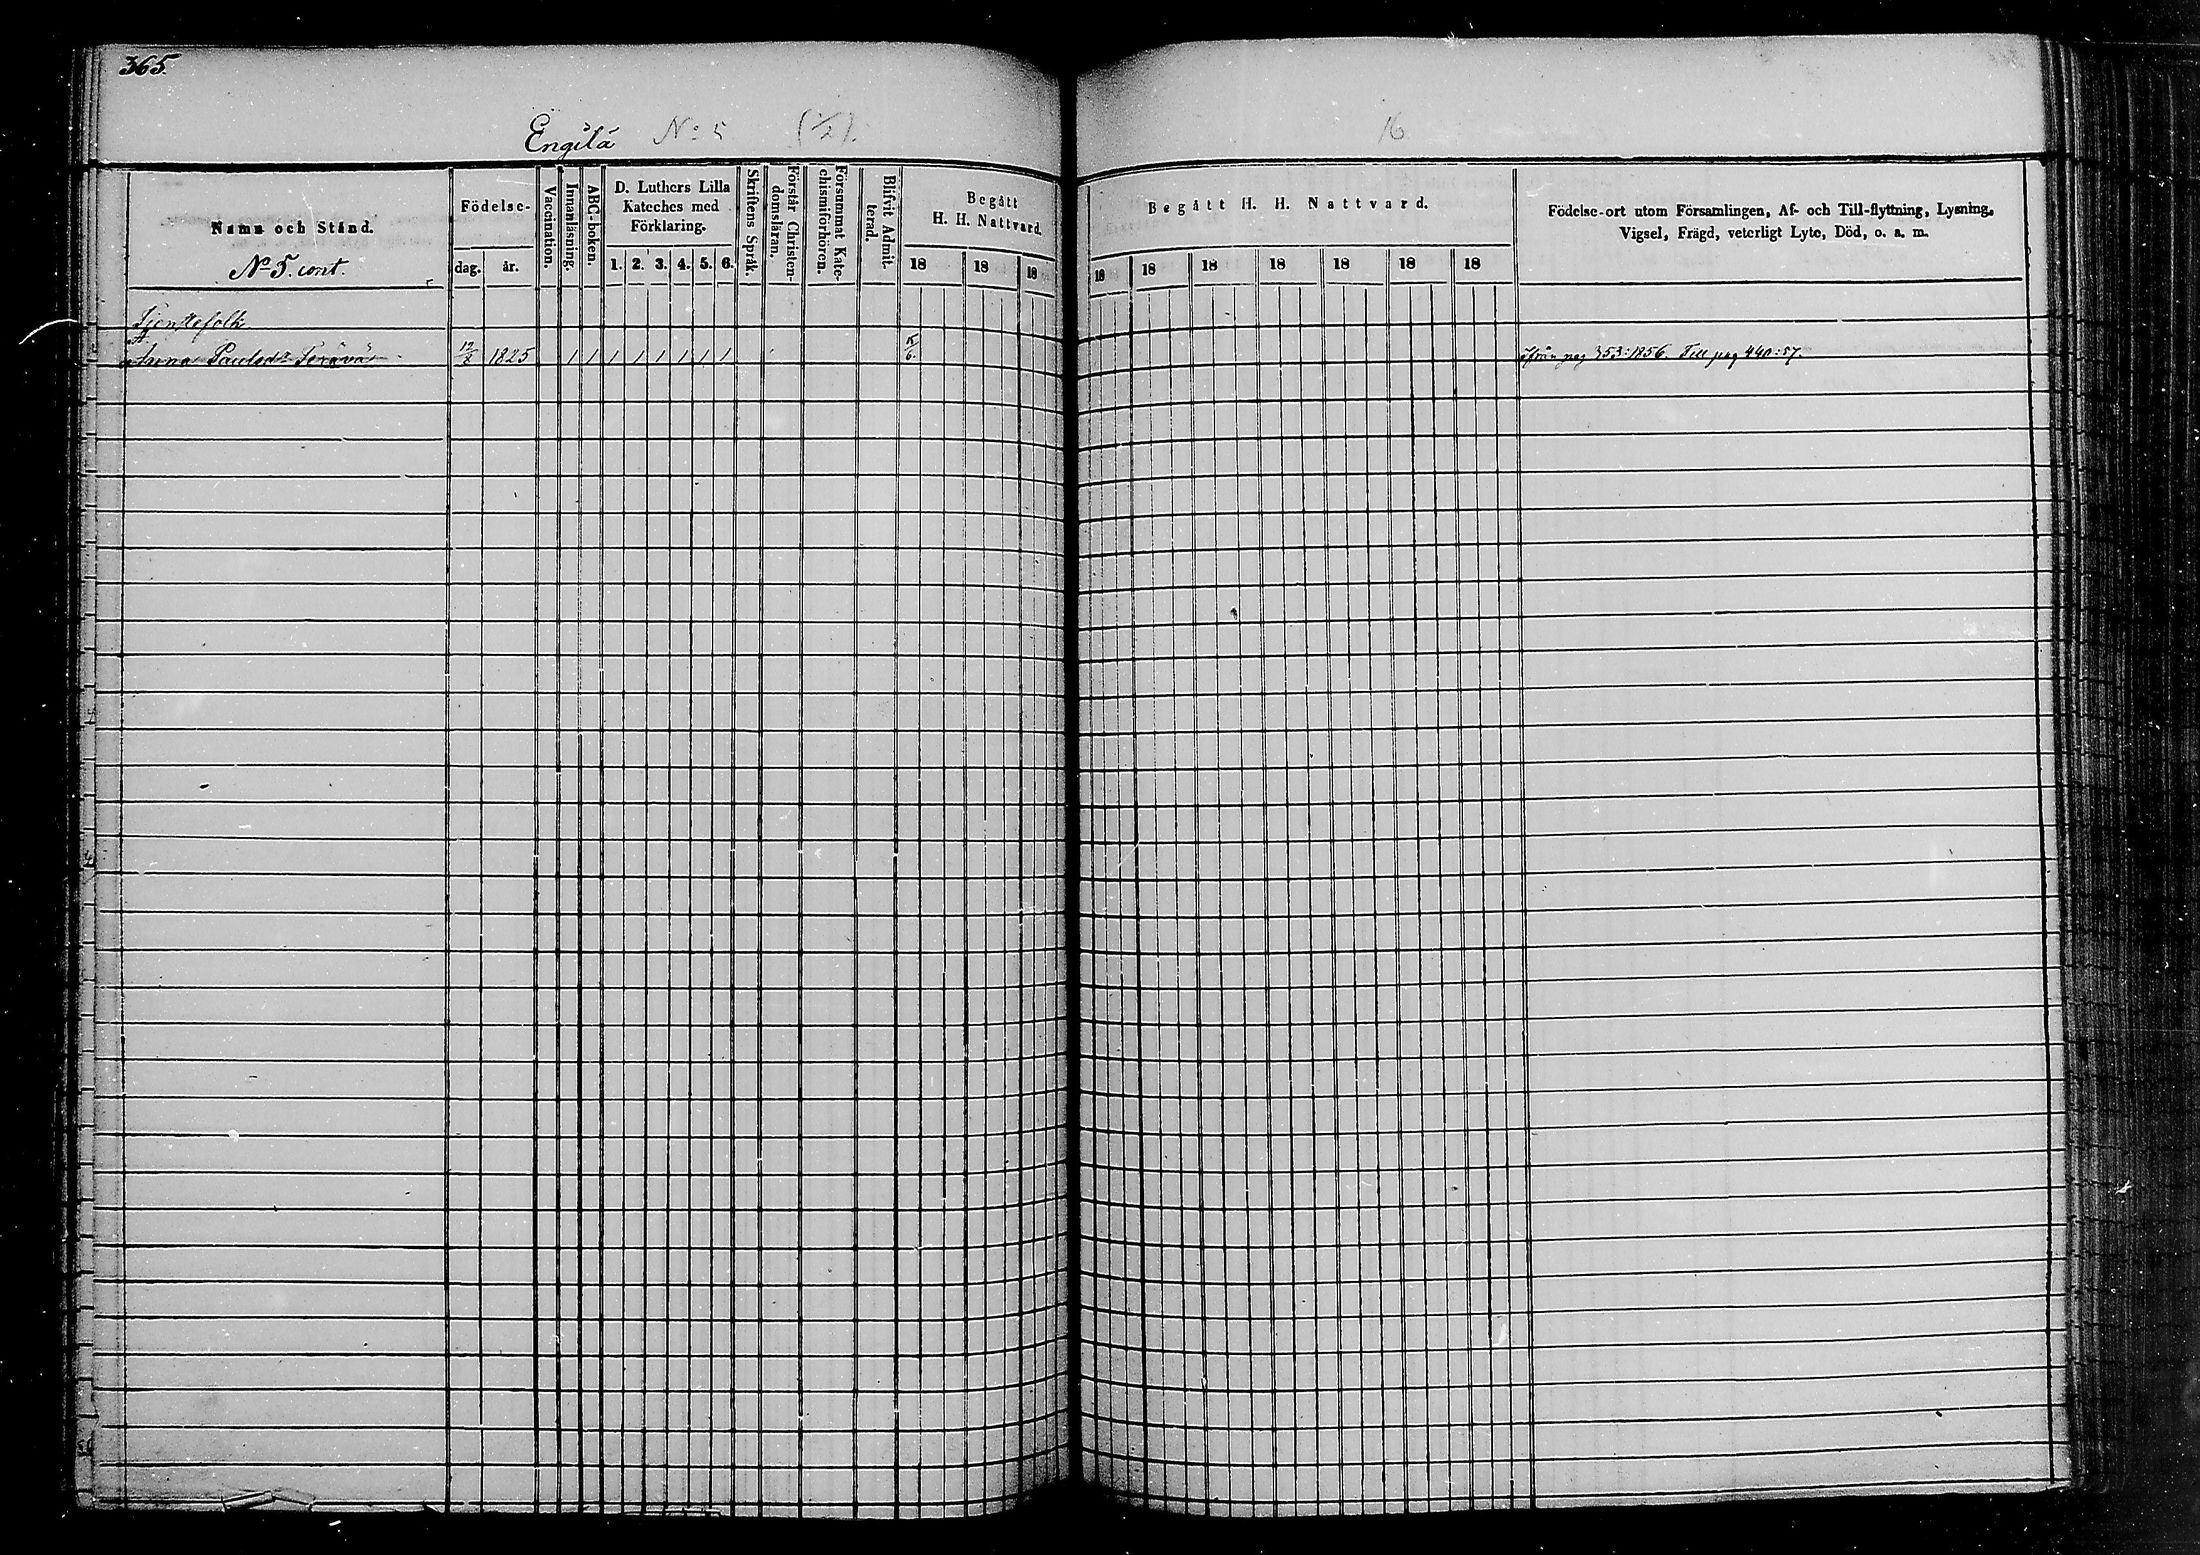 365.
Engilä No 5 (1/2).
16
Namn och Stånd.
No 5. cont.
Födelse-
dag. år.
Vaccination.
Innanläsning.
ABC-boken.
D. Luthers Lilla
Kateches med
Förklaring.
1. 2. 3. 4. 5. 6.
Skriftens Språk.
Förstår Christen-
domsläran.
Försummat Kate-
chismiförhören.
Blifvit Admit-
terad.
Begått
H. H. Nattvard.
18 18 18
Begått H. H. Nattvard.
18 18 18 18 18 18 18
Födelse-ort utom Församlingen, Af- och Till-flyttning, Lysning,
Vigsel, Frägd, veterligt Lyte, Död, o. a. m.
Tjenstefolk
Anna Paulsdr 12/8 1825 1 1 1 1 1 1 1 1 ifrån pag 353:1856. Till pag 440:57.